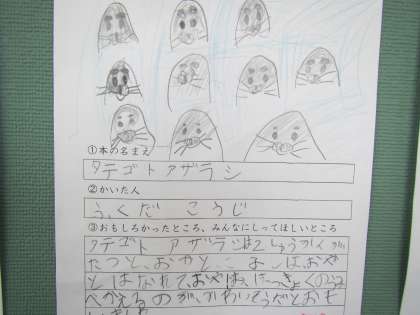 ①本の名まえ
タテゴトアザラシ
②かいた人
ふくだ こうじ
③おもしろかったところ、みんなにしってほしいところ
タテゴトアザラシは2しゅうかんが
たつと、おやと
とはなれて、おやは、ほっきょくの
へかえるのが、かわいそうだとおも
いました